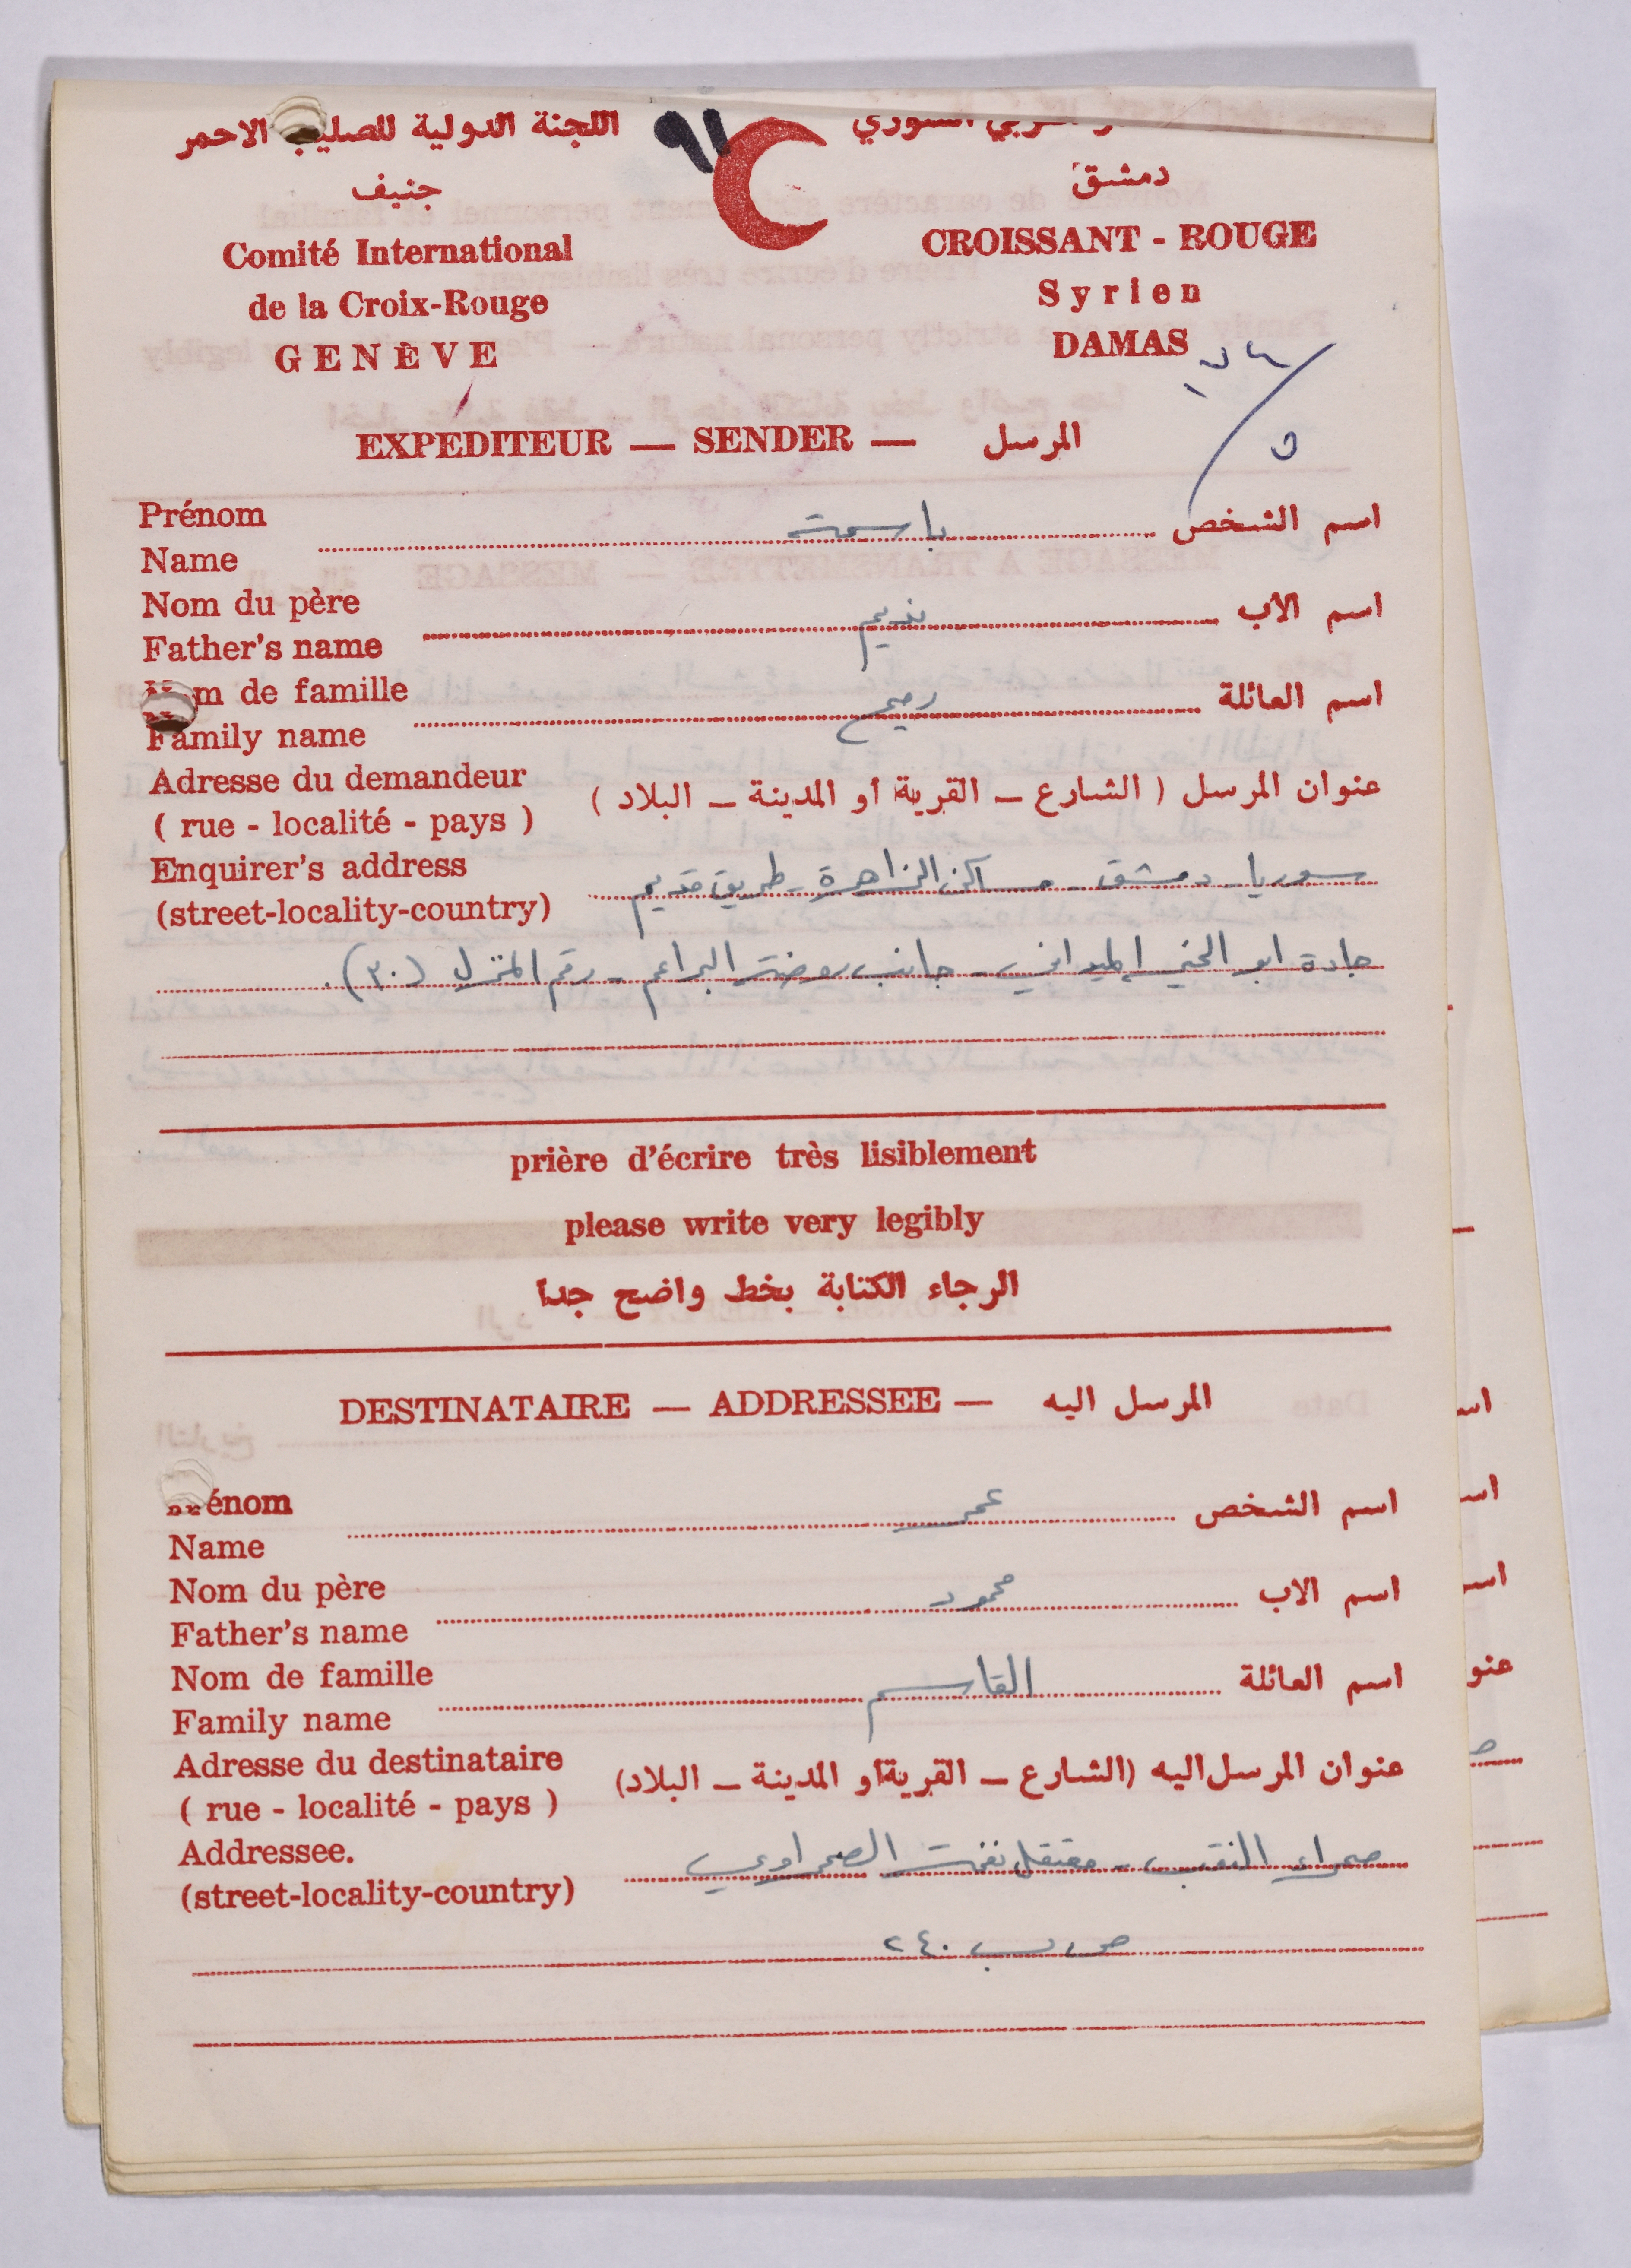 ٩١
اللجنة الدولية للصليب الاحمر
جنيف
Comité International
de la Croix-Rouge
GENÈVE
السوري
دمشق
CROISSANT - ROUGE
Syrien
DAMAS
EXPEDITEUR — SENDER — المرسل
Prénom
Name
باسمة
اسم الشخص
Nom du père
Father's name
نديم
اسم الأب
de famille
Family name
اسم العائلة
Adresse du demandeur
( rue - localité - pays )
عنوان المرسل ( الشارع – القرية أو المدينة – البلاد )
Enquirer's address
(street-locality-country)
سوريا - دمشق - مساكن الزاهرة - طريق قديم
جادة ابو الخير الميداني - جانب روضة البراعم - رقم المنزل (٣٠).
prière d'écrire très lisiblement
please write very legibly
الرجاء الكتابة بخط واضح جدا
DESTINATAIRE — ADDRESSEE — المرسل اليه
Prénom
Name
عمر
اسم الشخص
Nom du père
Father's name
محمود
اسم الاب
Nom de famille
Family name
القاسم
اسم العائلة
Adresse du destinataire
( rue - localité - pays )
عنوان المرسل اليه (الشارع – القرية أو المدينة – البلاد)
Addressee.
(street-locality-country)
صحراء النقب - معتقل نفحة الصحراوي
ص.ب ٢٤٠